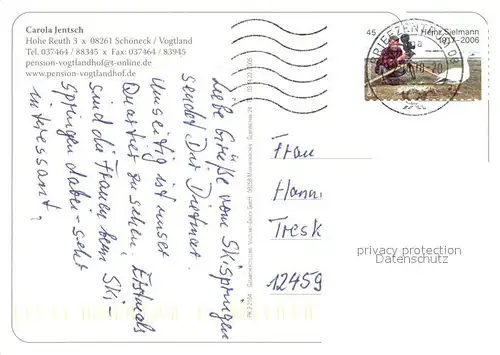 Carola Jentsch
Hohe Reuth 3 x 08261 Schöneck / Vogtland
Tel. 037464 / 88345 x Fax: 037464 / 83945
pension-vogtlandhof@t-online.de
www.pension-vogtlandhof.de
45 Heinz Sielmann
1917-2006
BRIEFZENTRUM 08
Liebe Grüße vom Skispringen
sendet Dir Dietmar.
Umseitig ist unser
Quartier zu sehen. Erstmals
sind die Frauen beim Ski-
springen dabei - sehr
interessant!
Frau
Hann
Tresk
12459
privacy protection
Datenschutz